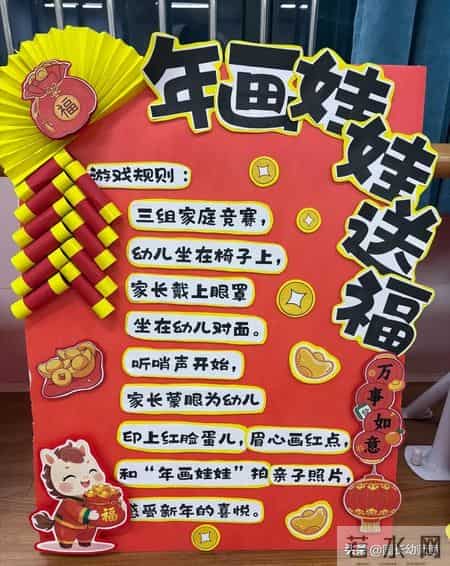 年画娃娃送福
福
游戏规则：
三组家庭竞赛，
幼儿坐在椅子上，
家长戴上眼罩
坐在幼儿对面。
听哨声开始，
家长蒙眼为幼儿
印上红脸蛋儿，眉心画红点，
和“年画娃娃”拍亲子照片，
感受新年的喜悦。
万事如意
福
头条